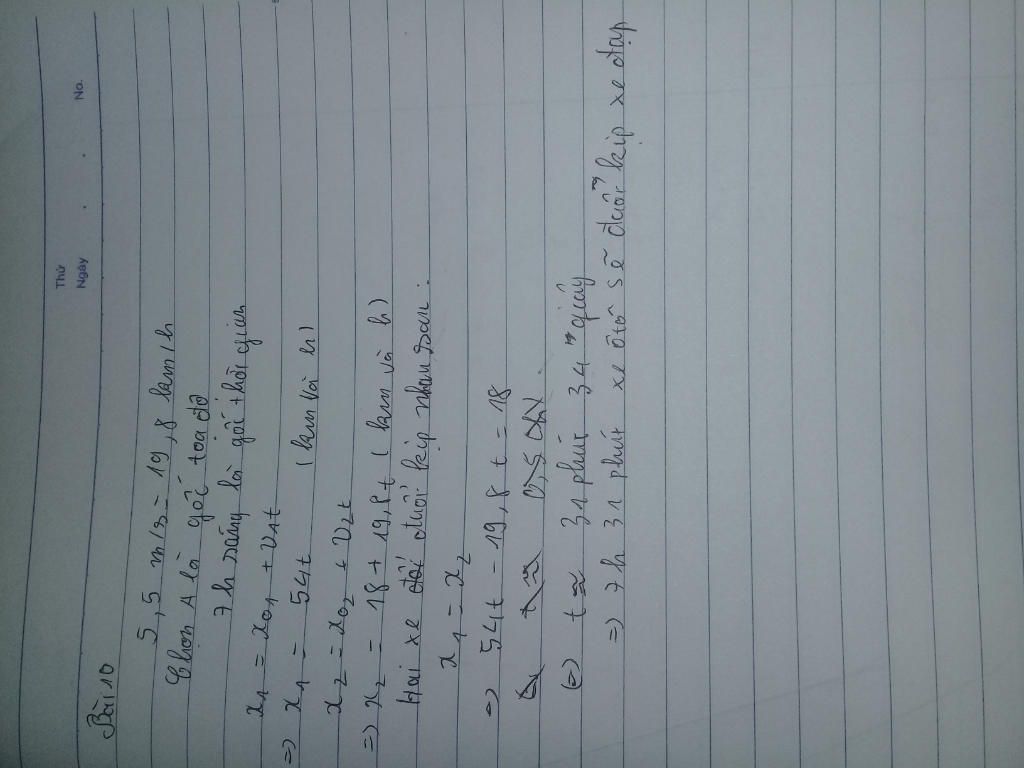 Thứ
Ngày . . No.
Bài 10
5,5 m/s = 19,8 km/h
Chọn A là gốc toạ độ
7h sáng là gốc thời gian
x1 = x01 + v1t
=> x1 = 54t (km và h)
x2 = x02 + v2t
=> x2 = 18 + 19,8t (km và h)
Hai xe đuổi kịp nhau sau:
x1 = x2
=> 54t - 19,8t = 18
t ≈ 0,5
(=) t ≈ 31 phút 34 giây
=> 7h 31 phút xe ôtô sẽ đuổi kịp xe đạp